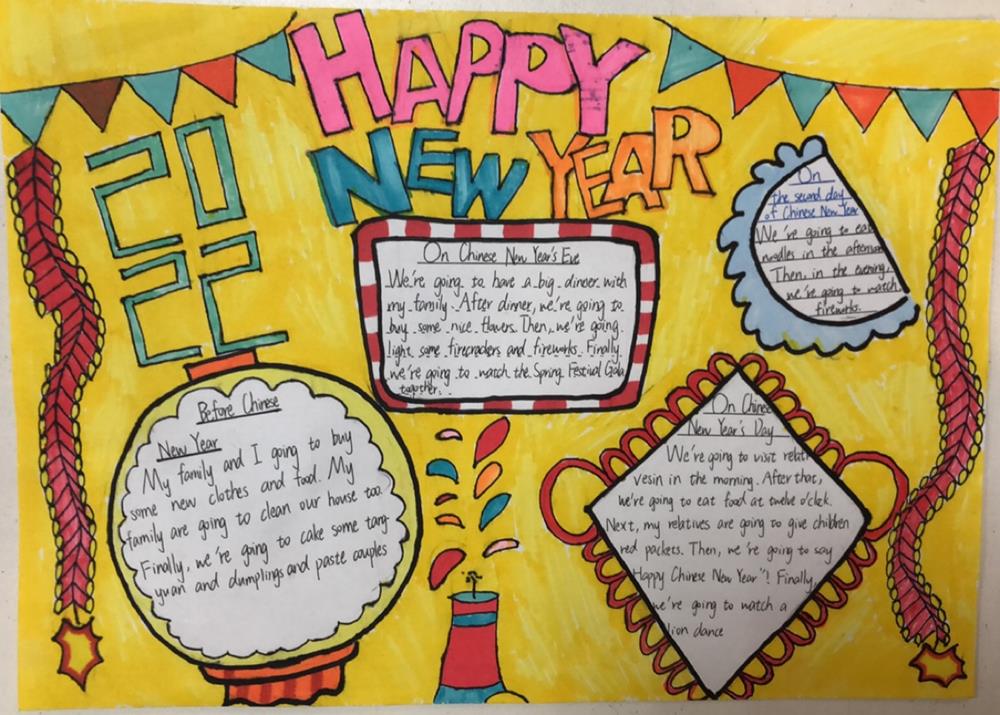 HAPPY
NEW YEAR
20
22
On Chinese New Year's Eve
We're going to have a big dinner with
my family. After dinner, we're going to
buy some nice flowers. Then, we're going
light some firecrackers and fireworks. Finally.
we're going to watch the Spring Festival Gala
together.
On
the second day
of Chinese New Year
We're going to eat
nudles in the afternoon
Then, in the evening,
we're going to watch
fireworks.
Before Chinese
New Year
My family and I going to buy
some new clothes and food. My
family are going to clean our house too.
Finally, we're going to cake some tang-
yuan and dumplings and paste couples
On Chinese
New Year's Day
We're going to visit relati
vesin in the morning. After that,
we're going to eat food at twelve o'clck.
Next, my relatives are going to give children
red packets. Then, we're going to say
Happy Chinese New Year"! Finally,
we're going to watch a
lion dance